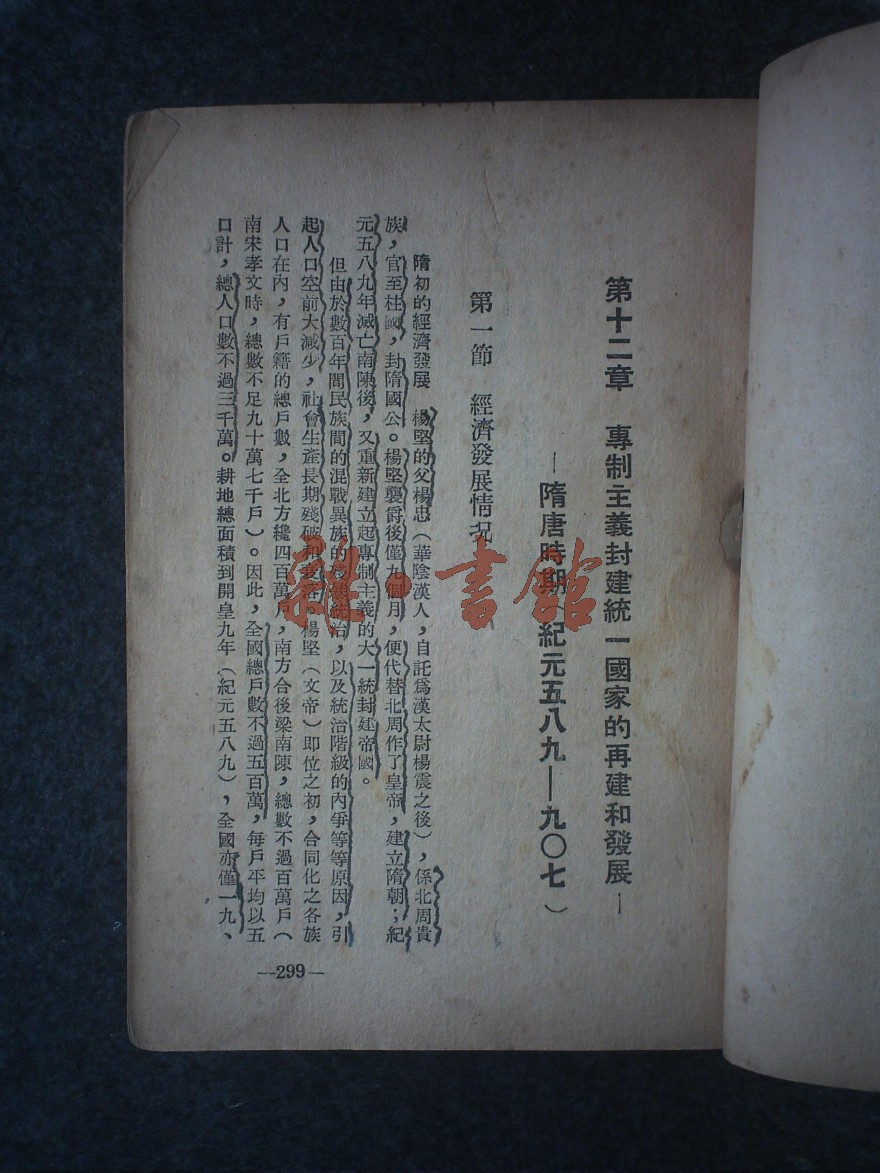 第十二章　專制主義封建統一國家的再建和發展—
—隋唐時期　紀元五八九—九〇七）
第一節　經濟發展情況
隋初的經濟發展　楊堅的父楊忠（華陰漢人，自託爲漢太尉楊震之後），係北周貴
族，官至柱國，封隋國公。楊堅襲爵後僅九個月，便代替北周作了皇帝，建立隋朝；紀
元五八九年滅亡南陳後，又重新建立起專制主義的大一統封建帝國。
但由於數百年間民族間的混戰異族的統治，以及統治階級的內爭等等原因，引
起人口空前大減少，社會生產長期殘破和。楊堅（文帝）即位之初，合同化之各族
人口在內，有戶籍的總戶數，全北方纔四百萬戶，南方合後梁南陳，總數不過百萬戶（
南宋孝文時，總數不足九十萬七千戶）。因此，全國總戶數不過五百萬，每戶平均以五
口計，總人口數不過三千萬。耕地總面積到開皇九年（紀元五八九），全國亦僅一九、
—299—
雜·書館